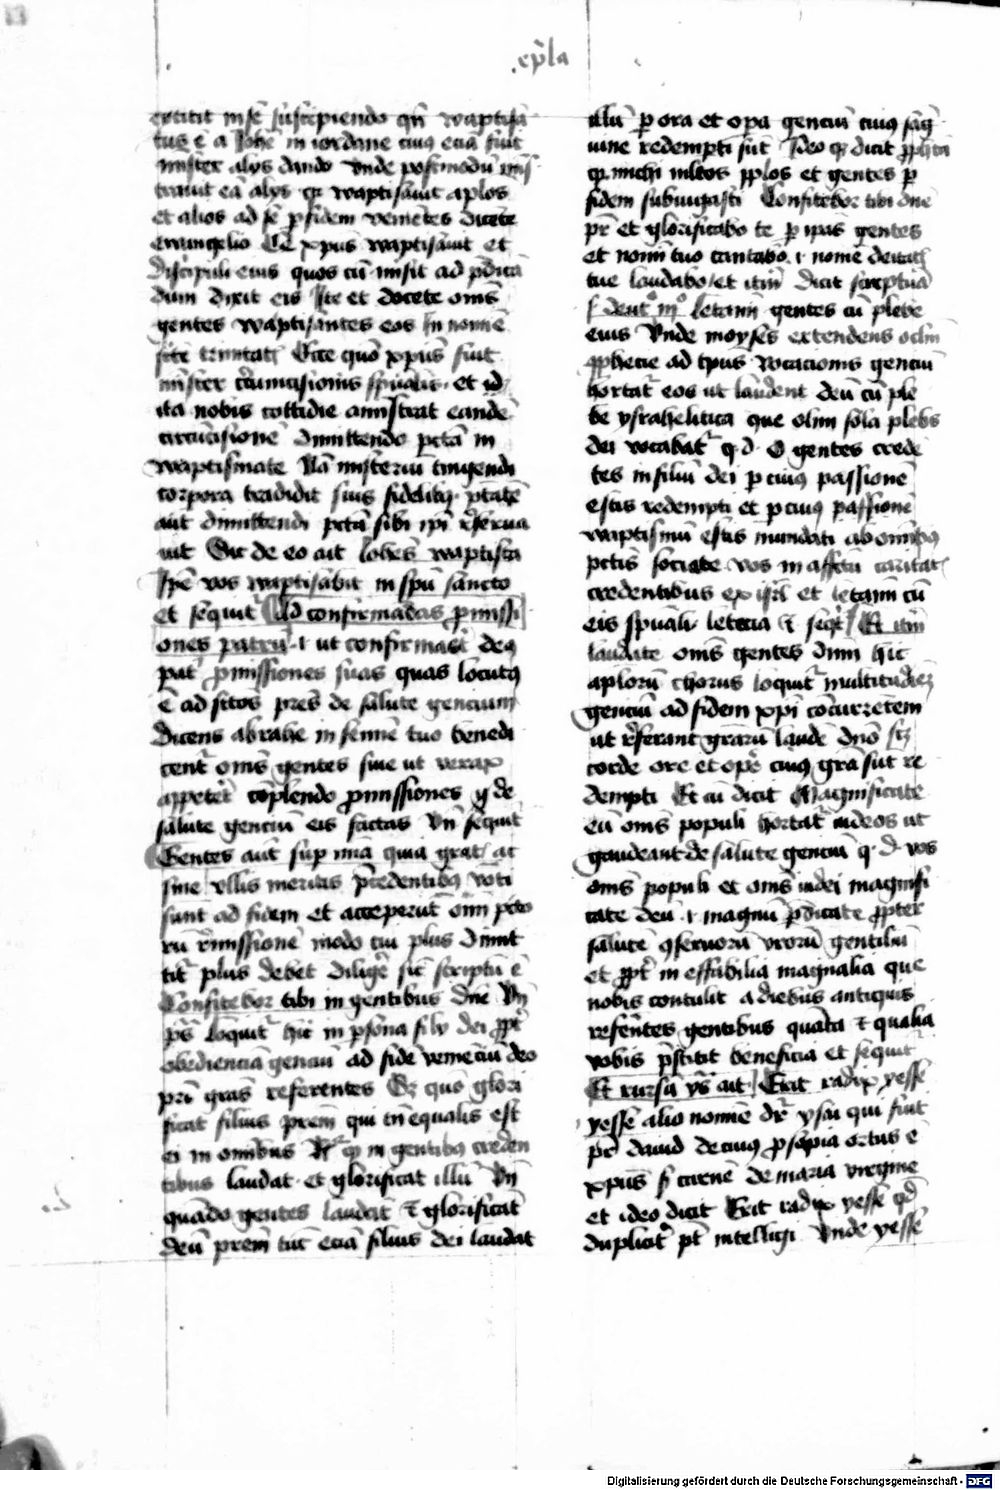 epl̄a
extitit in se suscipiendo qn̄ waptiſa
tus ē a Joh̄e in iordane cuius ecia fuit
mister alys dando vnde postmodū
traxit eā alys qr waptisauit aplos
et alios ad se p fidem veniētes dicēte
ewangelio Cē xpus waptisauit et
discipuli eius quos cū misit ad p̄dicā
dum dixit eis Ite et docete om̄s
gentes waptisantes eos in nomīe
sc̄te trinitatꝭ Ecce quō xpus fuit
mister circumcisionis spūalis et id
ita nobis cottidie amistrat eandē
circūcisionē dimittendo pctā in
waptismate Nā misteriū tingendi
corpora tradidit suis fidelibꝫ ptātē
aūt dimittendi pctā sibi ipi reserua
uit Sic de eo ait Joh̄es waptista
Ipē vos waptisabit in spū sancto
et sequit̄ Ad confirmadas pmissi
ones patrū .i. ut confirmaret deꝫ
pat̄ pmissiones suas quas locutꝫ
ē ad sc̄tos pres de salute gencium
dicens abrahe in semīe tuo bēnedi
cent̄ om̄s gentes siue ut verax
apperet̄ cōplendo pmissiones de
salute genciū eis factas Vn̄ sequit̄
Gentes aūt sup mīa quia gratꝭ ac
sine vllis meritis p̄cedentibꝫ vōti
sunt ad fidem et acceperūt om̄ pctō
rū remissionē modo cui plus dimit
tit̄ plus debet diligē sic scriptū ē
Confitebor tibi in gentibus dn̄e Vn̄
ps̄ loquit̄ hic in psona filij dei ppt̄
obedienciā genciū ad fidē veniēciū deo
pri gr̄as referentes Sꝫ quō glori
ficat filius prem qui in equalis est
ei in omībus Rꝰ qr in gentibꝫ creden
tibus laudat et glorificat illū Vn̄
quādo gentes laudāt et glorificāt
deū prem tūc eciā filius dei laudat
illū p ora et opa genciū cuius sāg
uine redempti sūt Ideo qr dicit ppheta
qr michi mltos pplos et gentes p
fidem subiugasti Confitebor tibi dn̄e
pr̄ et glorificabo te p ipas gentes
et nomī tuo cantabo .i. nomē deitatꝭ
tue laudabo et itm̄ dicit scriptura
s deut̄º mº Letamī gentes cū plebe
eius Vnde moyses extendens oclm
pphecie ad tpus vocacionis genciū
hortat̄ eos ut laudent deū cū ple
be ysrahelitica que olim sola plebs
dei vocabat̄ q.d. O gentes crede
tes in filiū dei p cuius passionē
estis redempti et p cuius passionē
waptismū estis mundati ab omībꝫ
pctis sociate vos in affcū caritatꝭ
credentibus ex isrl et letamī cū
eis spūali leticia et seqt̄ Et itm̄
laudate om̄s gentes dnm hic
aplorū chorus loquit̄ multitudiēꝫ
genciū ad fidem xpi cōcurrētem
ut referant grārū laudē dn̄o scꝫ
corde ore et opē cuius grā sūt re
dempti Et cū dicit Magnificate
eū om̄s populi hortat̄ iudeos ut
gaudeant de salute genciū q.d. vos
om̄s populi et om̄s iudei magnifi
cate deū .i. magnū p̄dicate ppter
salutē cseruorū vrorū gentiliū
et ppt̄ ineffabilia magnalia que
nobis contulit a diebus antiquis
resēntes gentibus quāta et qualia
vobis p̄stitit beneficia et sequit̄
Et rursū ys̄ ait Erit radix yesse
yesse alio nomīe dr̄ ysai qui fuit
pr̄ dauid de cuius psapia ortus ē
xpus s carnē de maria virgine
et ideo dicit Erit radix yesse qd
duplicit̄ pt̄ intelligi Vnde yesse
Digitalisierung gefördert durch die Deutsche Forschungsgemeinschaft - DFG